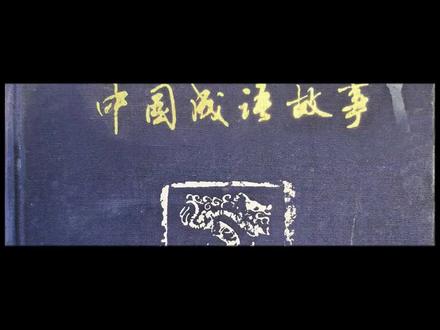 中国成语故事